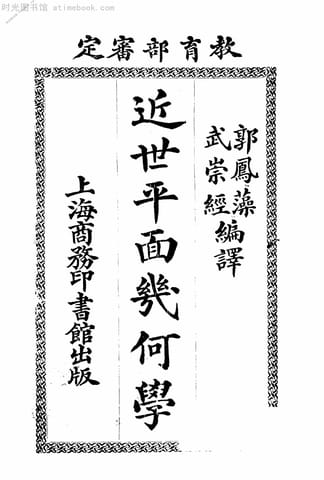 时光图书馆 atimebook.com
教育部審定
郭鳳藻
武崇經編譯
近世平面幾何學
上海商務印書館出版